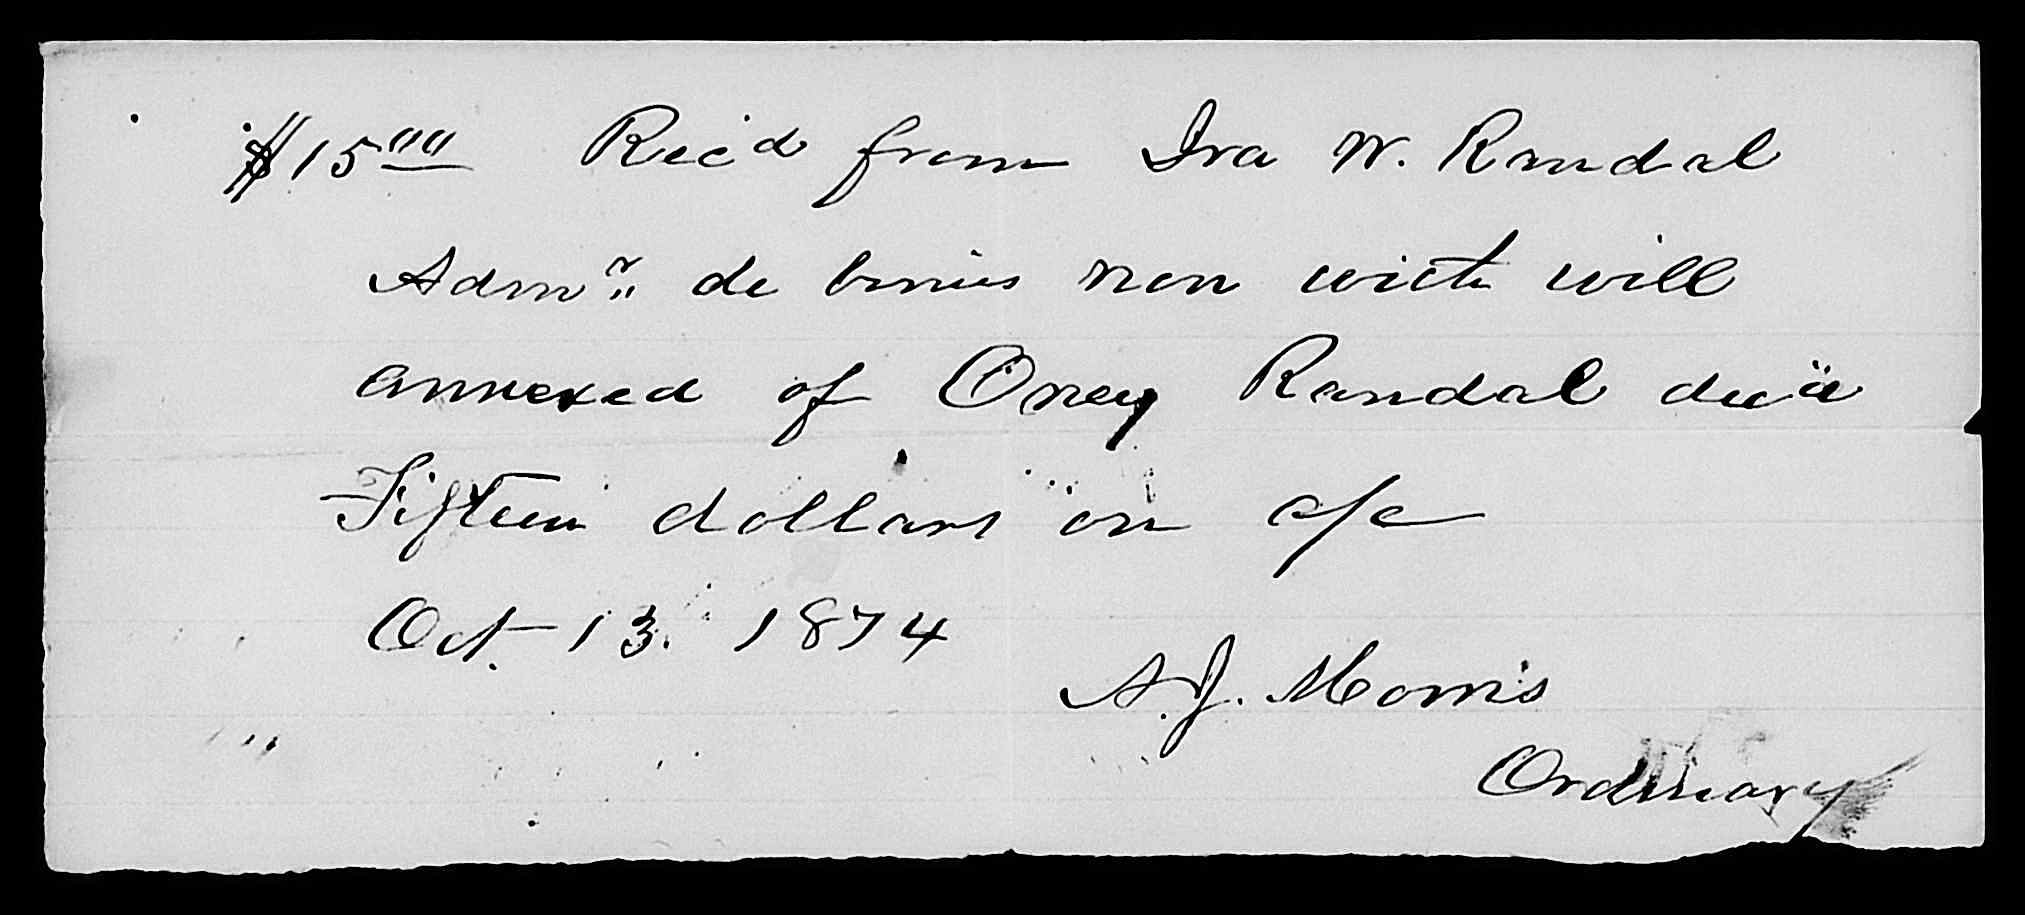 $15.00 Rec'd from Ira W. Randal
Admr. de bonis non with will
annexed of Oney Randal dec'd
Fifteen dollars on a/c
Oct. 13. 1874
A. J. Morris
Ordinary